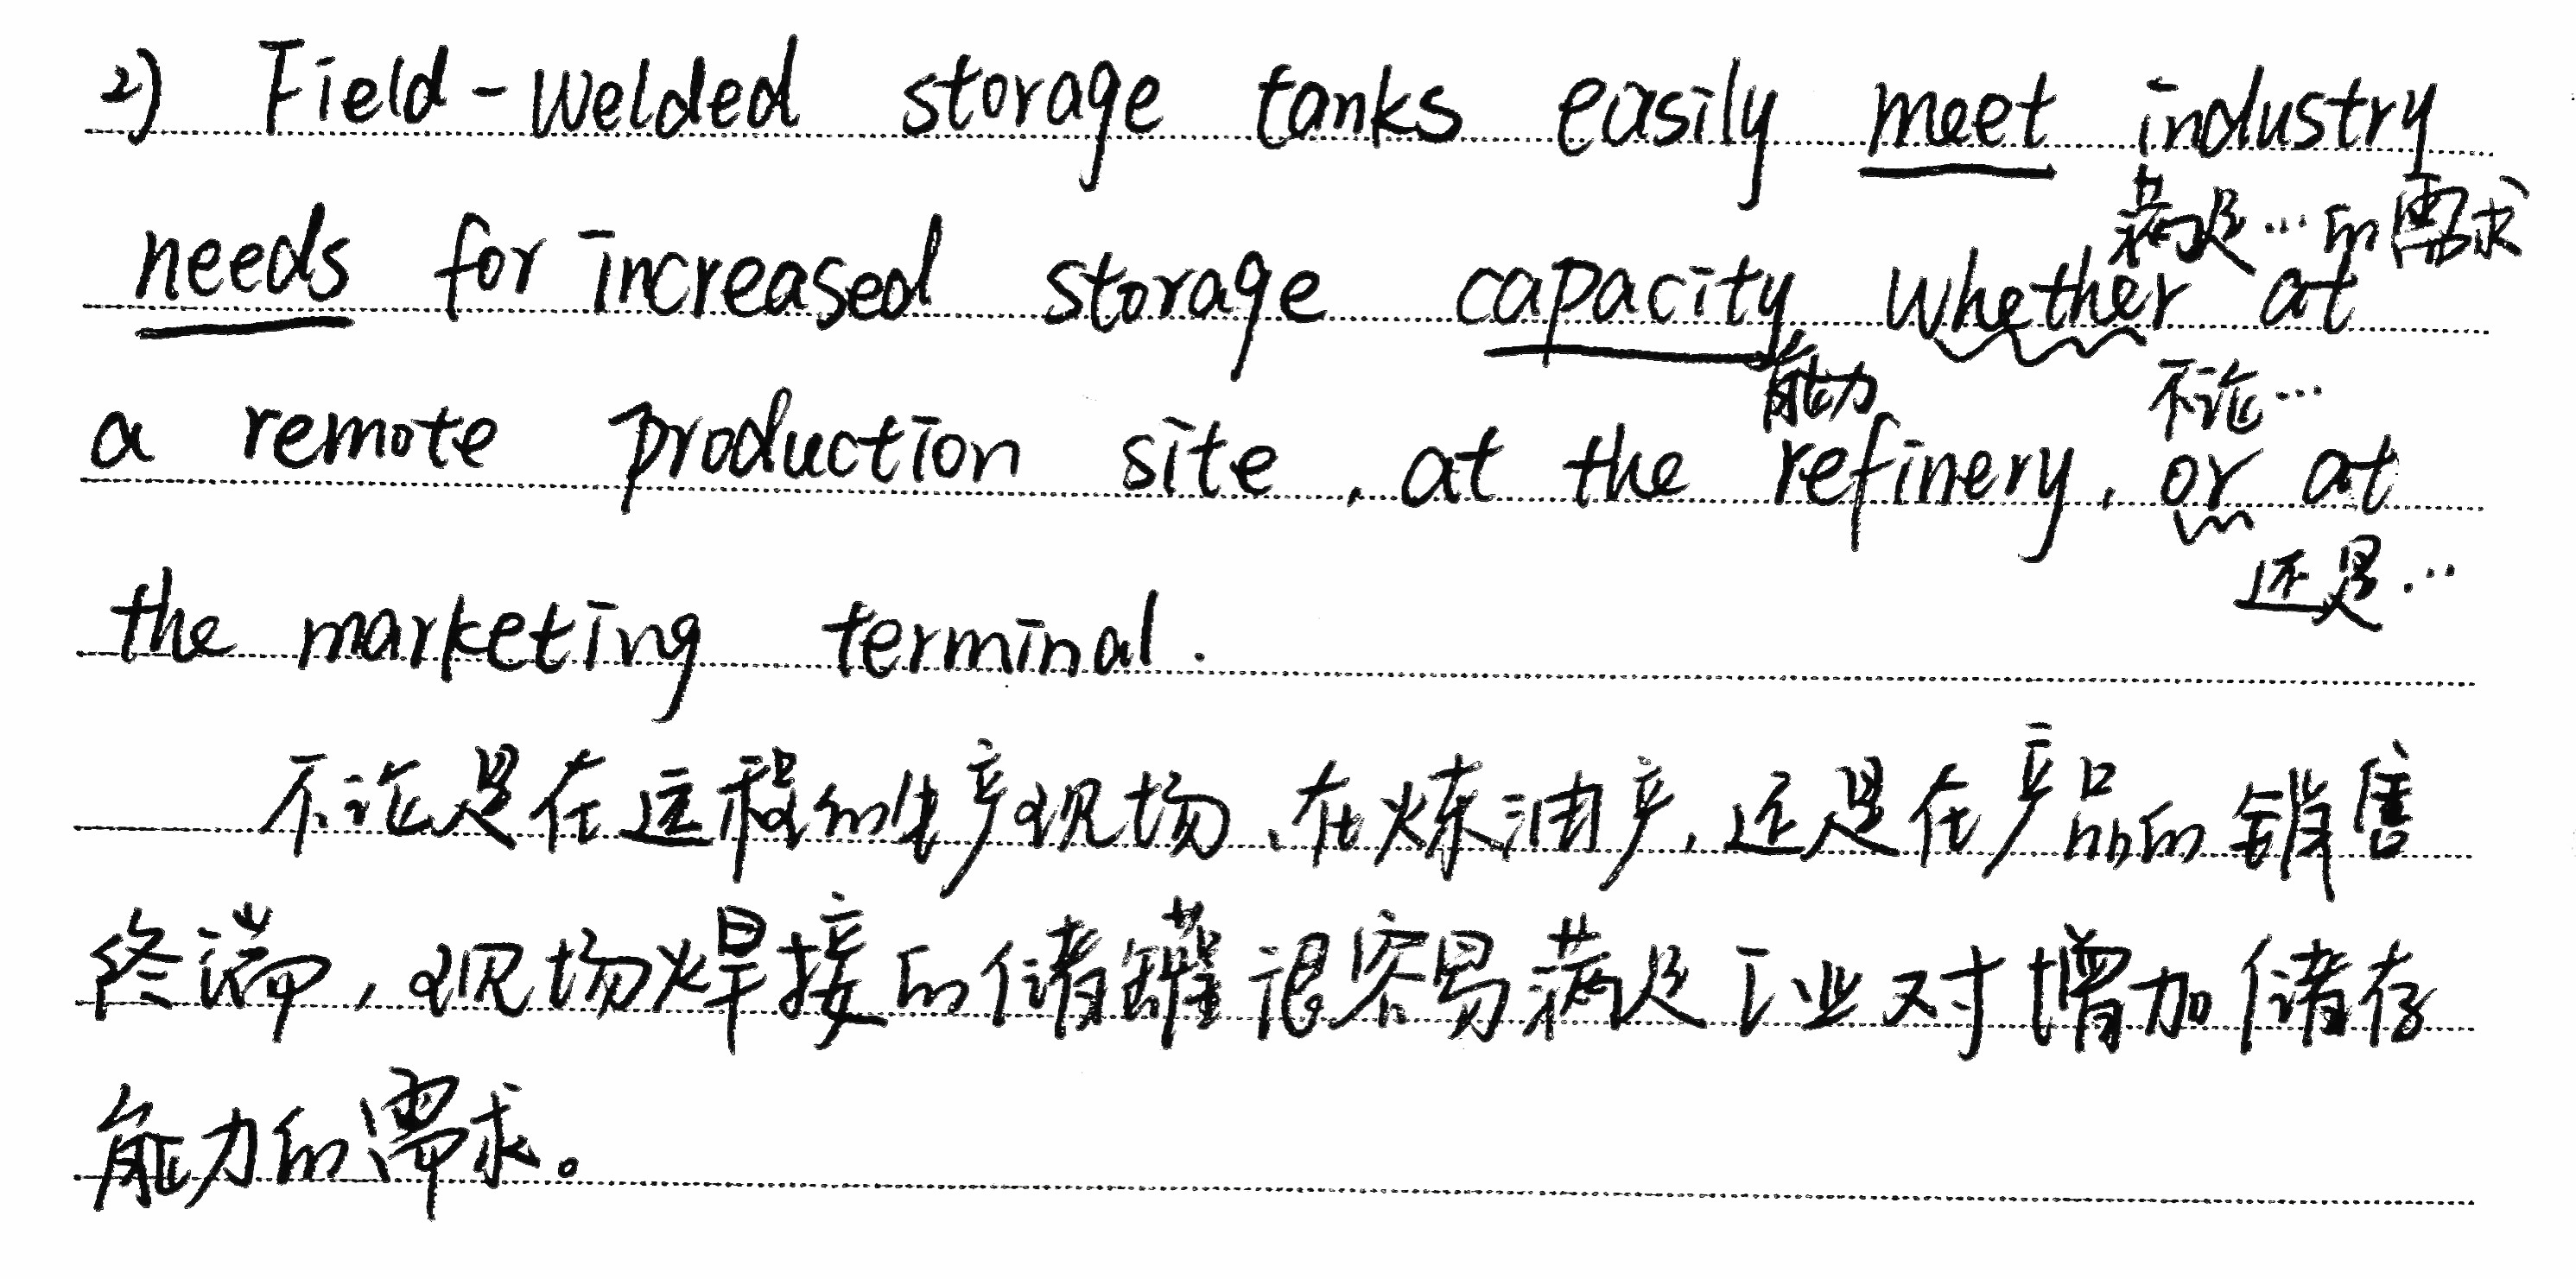 2) Field-welded storage tanks easily meet industry
满足…的需求
needs for increased storage capacity whether at
能力 不论…
a remote production site, at the refinery, or at
还是…
the marketing terminal.
不论是在远程的生产现场、在炼油产,还是在产品的销售
终端,现场焊接的储罐很容易满足工业对增加储存
能力的需求。